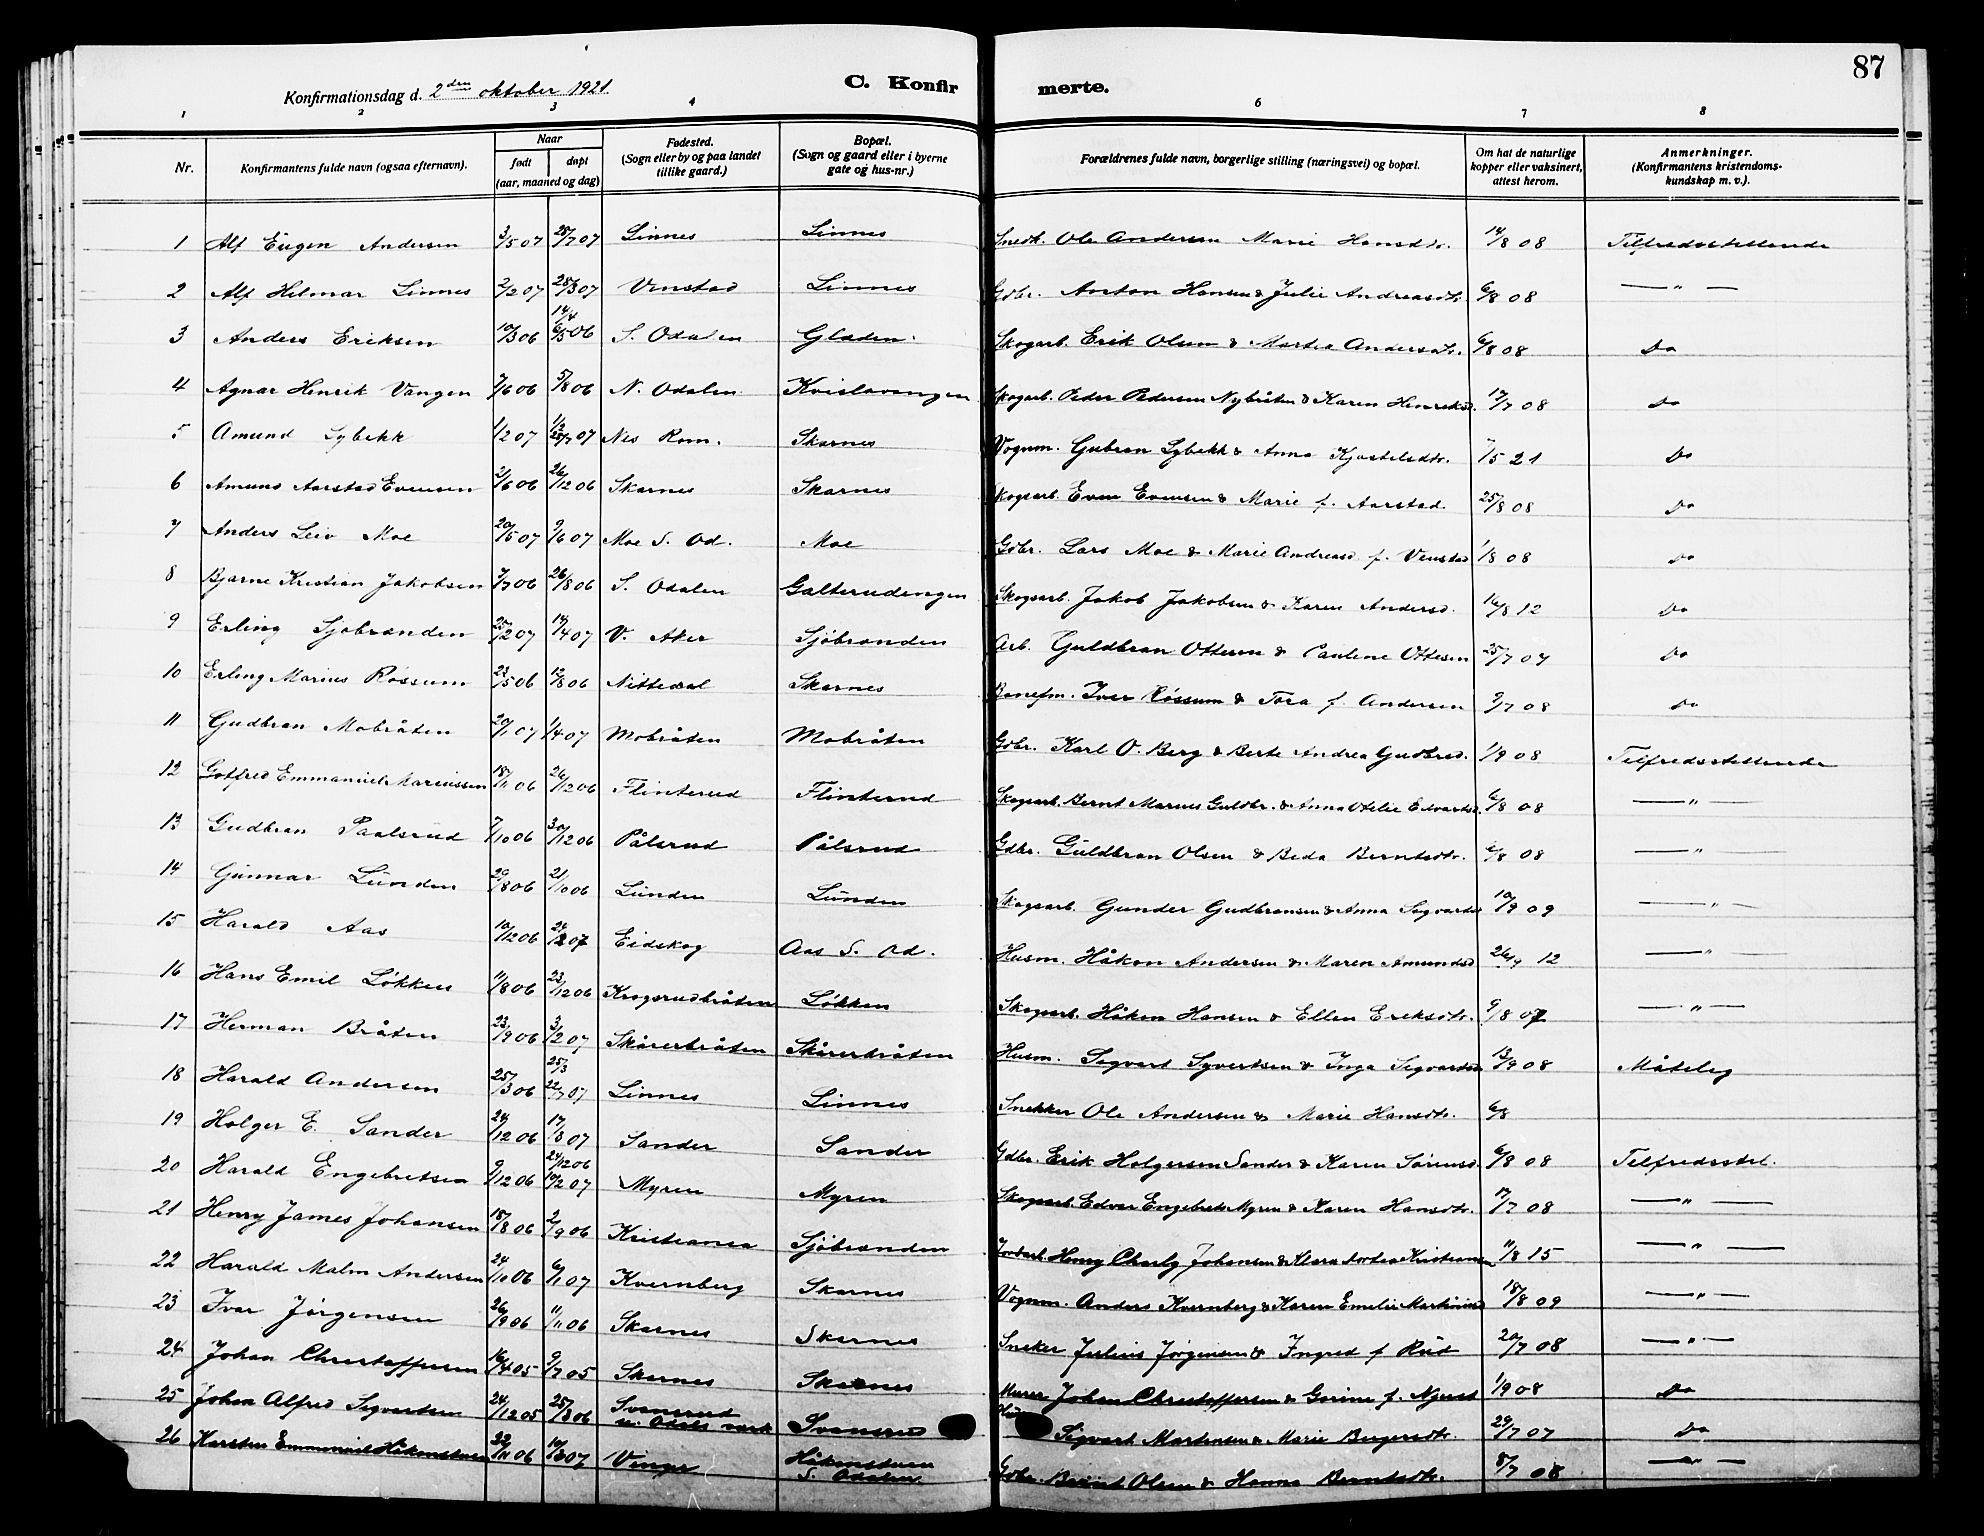 87
Konfirmationsdag d. 2den oktober 1921.
C. Konfir
merte.
1 2 3 4 6 7 8
Nr. Konfirmantens fulde navn (ogsaa efternavn). Naar født døpt (aar, maaned og dag) Fødested. (Sogn eller by og paa landet tillike gaard.) Bopæl. (Sogn og gaard eller i byerne gate og hus-nr.) Forældrenes fulde navn, borgerlige stilling (næringsvei) og bopæl. Om hat de naturlige kopper eller vaksinert, attest herom. Anmerkninger. (Konfirmantens kristendoms-kundskap m. v.).
1 Alf Eugen Andersen 3/5 07 28/7 07 Linnes Linnes Snedk. Ole Andersen Marie Hansdtr. 14/8 08 Tilfredsstillende
2 Alf Hilmar Linnes 2/2 07 28/3 07 Vinstad Linnes Gdbr. Anton Hansen & Julie Andreasdtr. 6/8 08 — " —
3 Anders Eriksen 10/3 06 14/4 6/5 06 S. Odalen Gladen. Skogarb. Erik Olsen & Martea Andersdtr. 6/8 08 Do
4 Agnar Henrik Vangen 7/6 06 5/8 06 N. Odalen Kvislavangen Skogarb. Peder Pedersen Nybråten & Karen Henriksd. 17/7 08 Do
5 Amund Lybekk 1/2 07 1/2 28/7 07 Nes Rom. Skarnes Vognm. Gubran Lybekk & Anna Kjostelsdtr. 7/5 21 Do
6 Amund Aarstad Evensen 2/6 06 26/12 06 Skarnes Skarnes Skogsarb. Even Evensen & Marie f. Aarstad. 25/8 08 Do
7 Anders Leiv Moe 20/5 07 9/6 07 Moe S. Od. Moe Gdbr. Lars Moe & Marie Andreasd. f. Venstad 1/8 08 Do
8 Bjarne Kristian Jakobsen 7/7 06 26/8 06 S. Odalen Galterudengen Skogsarb. Jakob Jakobsen & Karen Andersd. 16/8 12 Do
9 Erling Sjøbranden 25/2 07 14/4 07 V. Aker Sjöbranden Arb. Guldbran Ottesen & Pauline Ottesen 25/7 07 Do
10 Erling Marius Røssum 23/5 06 12/8 06 Nittedal Skarnes Banefm. Iver Røssum & Tora f. Andersen 9/7 08 Do
11 Gudbran Mobråten 20/1 07 1/4 07 Mobråten Mobråten Gdbr. Karl O. Berg & Berte Andrea Gudbrd. 1/9 08 Tilfredsstillende
12 Gotfred Emmanuel Mariussen 18/11 06 26/12 06 Flinterud Flinterud Skogsarb. Bernt Marius Guldbr. & Anna Otelie Edvardsd. 6/8 08 — " —
13 Gudbran Paalsrud 7/10 06 30/12 06 Pålsrud Pålsrud Gdbr. Guldbran Olsen & Beda Berntsdtr. 6/8 08 — "
14 Gunnar Lunden 29/8 06 21/10 06 Lunden Lunden Skogsarb. Gunder Gudbransen & Anna Sigvartsd. 10/9 09 — " —
15 Harald Aas 10/12 06 24/2 07 Eidskog Aas S. Od. Husm. Håkon Andersen & Maren Amundsd. 26/9 12 — " —
16 Hans Emil Løkken 11/8 06 23/12 06 Krogsrudbråten Løkken Skogsarb. Håkon Hansen & Ellen Eriksdtr. 9/8 07 — " —
17 Herman Bråten 23/9 06 3/2 07 Skårerbråten Skårerbråten Husm. Sigvart Syvertsen & Inga Sigvartsd. 13/9 08 Måtelig
18 Harald Andersen 25/3 06 25/3 22/7 07 Linnes Linnes Snekker Ole Andersen & Marie Hansdtr. 6/8
19 Holger E. Sander 24/12 06 17/3 07 Sander Sander Gdbr. Erik Holgersen Sander & Karen Sørensd. 6/8 08 Tilfredsstil.
20 Harald Engebretsen 9/12 06 24/12 06 10/2 07 Myren Myren Skogsarb. Edvar Engebrets. Myren & Karen Hansdtr. 17/7 08 — " —
21 Henry James Johansen 18/8 06 2/9 06 Kristiania Sjöbranden Jordarb. Henry Charly Johansen & Klara Kristiansen 11/8 15 — " —
22 Harald Malm Andersen 24/10 06 6/1 07 Kvernberg Skarnes Vognm. Anders Kvernberg & Karen Emelie Martinusd. 18/8 09 — " —
23 Ivar Jørgensen 26/9 06 11/11 06 Skarnes Skarnes Sneker Julius Jørgensen & Ingred f. Rud 20/7 08 — " —
24 Johan Christoffersen 16/4 05 9/7 05 Skarnes Skarnes Murer Johan Christoffersen & Gorine f. 1/9 08 Do
25 Johan Alfred Sigvartsen 24/12 05 25/3 06 Svanerud u. Odals verk Svanerud Sigvart Martinsen & Marie Birgersdtr. 29/7 07 Do
26 Karsten Emmanuel Håkenstuen 22/11 06 10/3 07 Vinger Håkenstuen S. Odalen Gdbr. Bernt Olsen & Hanna Berntsdtr. 8/7 08 — " —